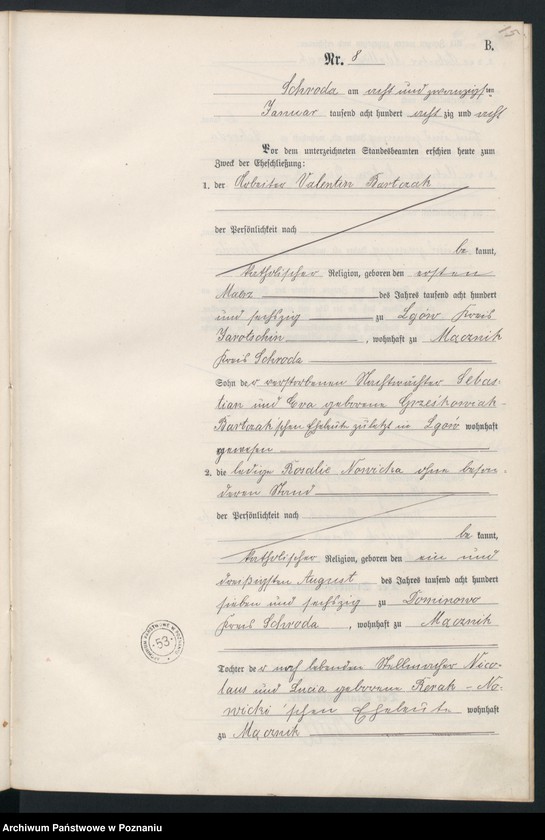 15.
B.
Nr. 8
Schroda am acht und zwanzigsten
Januar tausend acht hundert acht zig und acht
Vor dem unterzeichneten Standesbeamten erschien heute zum
Zweck der Eheschließung:
1. der Arbeiter Valentin Bartczak
der Persönlichkeit nach
be kannt,
katholischer Religion, geboren den ersten
März des Jahres tausend acht hundert
und sechszig zu Lgów Kreis
Jarotschin, wohnhaft zu Mącznik
Kreis Schroda
Sohn der verstorbenen Nachtwächter Sebas-
tian und Eva geborene Grześkowiak-
Bartczak'schen Eheleute zuletzt in Lgów wohnhaft
gewesen
2. die ledige Rosalie Nowicka ohne beson-
deren Stand
der Persönlichkeit nach
be kannt,
katholischer Religion, geboren den ein und
dreißigsten August des Jahres tausend acht hundert
sieben und sechszig zu Dominowo
Kreis Schroda, wohnhaft zu Mącznik
Tochter der noch lebenden Stellmacher Nico-
laus und Lucia geborene - No-
wicki'schen Eheleute wohnhaft
zu Mącznik
ARCHIWUM PAŃSTWOWE W POZNANIU
53
Archiwum Państwowe w Poznaniu